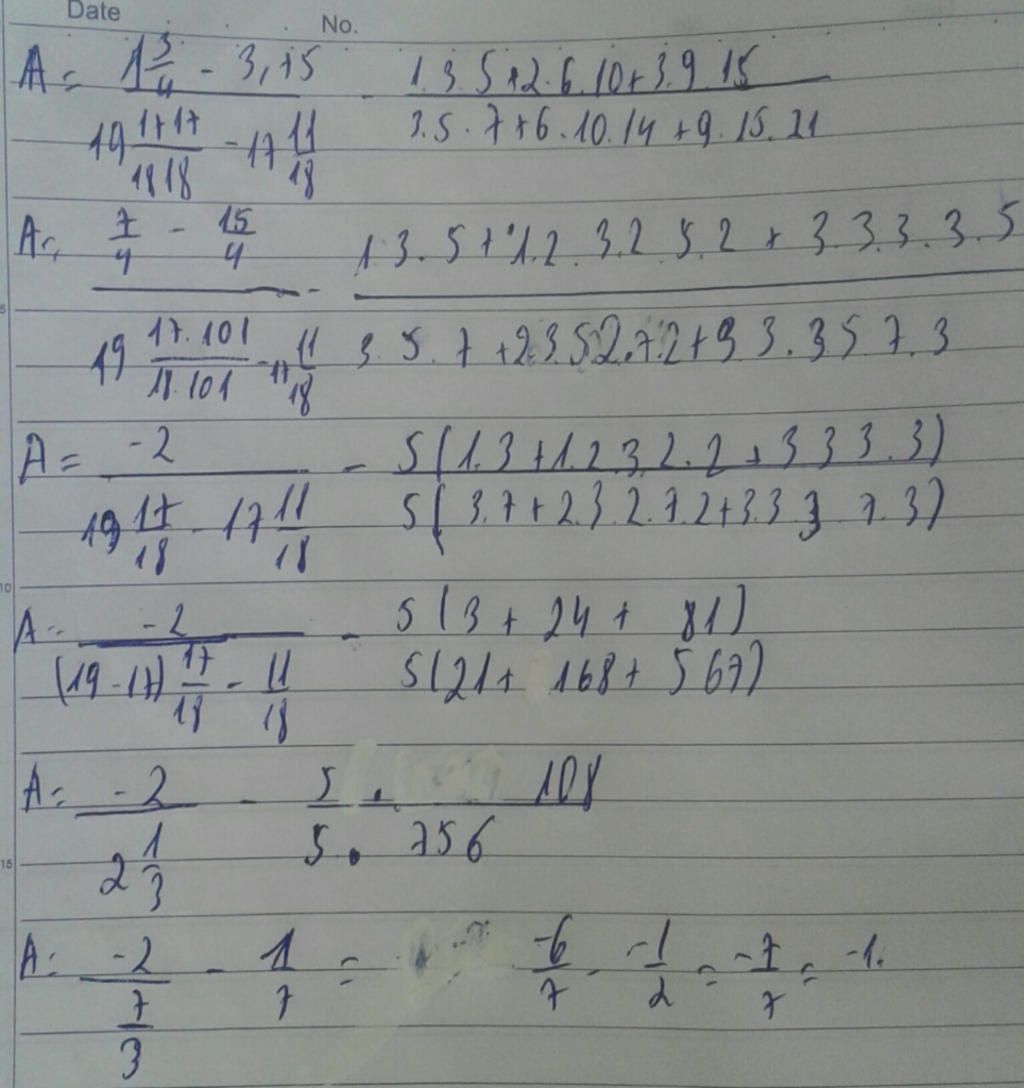 Date
No.
A = 1 3/4 - 3,75 / 19 1717/1818 - 17 11/18 - 1.3.5+2.6.10+3.9.15 / 3.5.7+6.10.14+9.15.21
A = 7/4 - 15/4 / 19 17.101/18.101 - 17 11/18 - 1.3.5+1.2.3.2 5.2 + 3.3.3.3.5 / 3.5.7+2.3.5.2.7.2+3 3.3 5 7.3
5
A = -2 / 19 17/18 - 17 11/18 - 5(1.3+1.2 3 2.2+3 3 3.3) / 5(3.7+2.3.2.7.2+3.3 3 7.3)
10
A = -2 / (19-17) 17/18 - 11/18 - 5(3+24+81) / 5(21+168+567)
A = -2 / 2 1/3 - 5. 108 / 5. 756
15
A = -2 / 7/3 - 1/7 = -6/7 - -1/2 = -7/7 = -1.